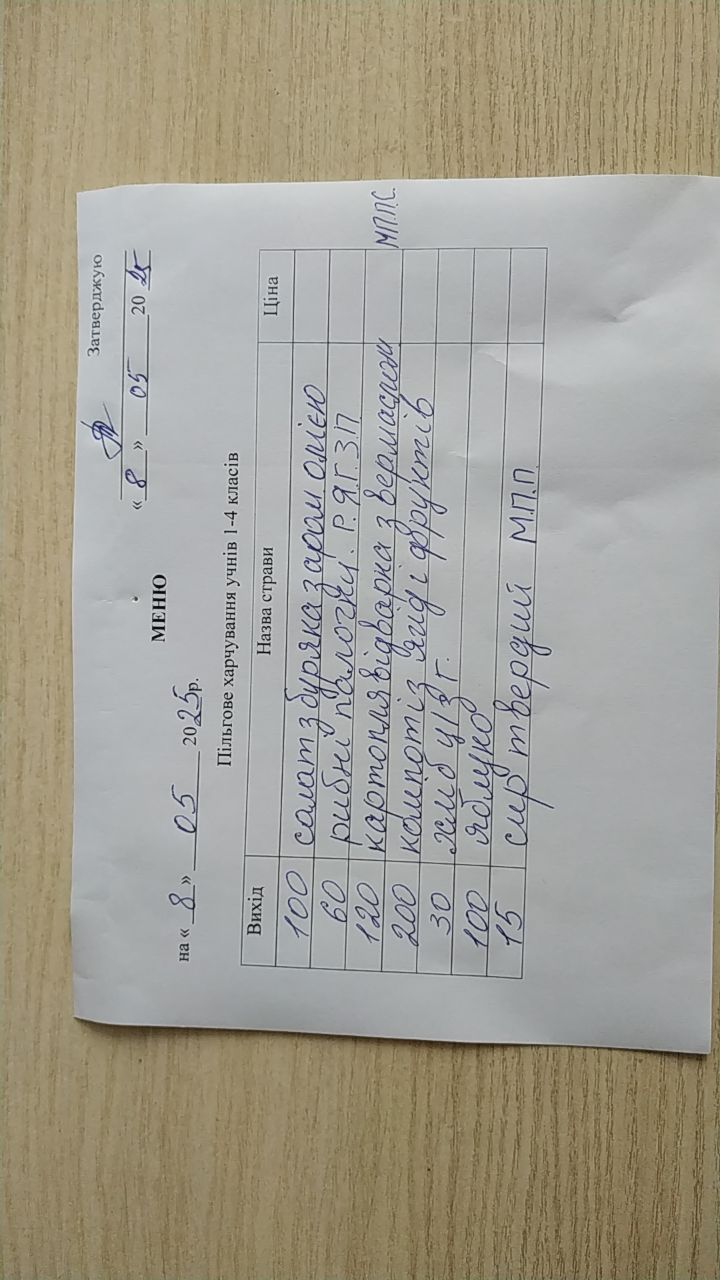 Затверджую
« 8 » 05 20 25
МЕНЮ
на « 8 » 05 20 25 р.
Пільгове харчування учнів 1-4 класів
Вихід Назва страви Ціна
100 салат з буряка з аром олією
60 рибні палочки. Р.Я.Г.З.П
120 картопля відварна з вермаслом М.П.П.С.
200 компот із ягід і фруктів
30 хліб ц/з г.
100 яблуко
15 сир твердий М.П.П.